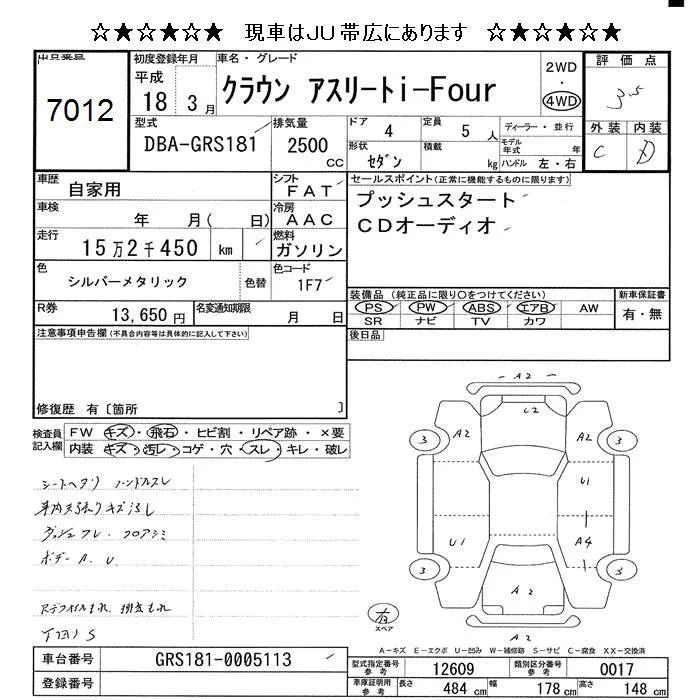 ☆★☆★☆★ 現車はJU帯広にあります ☆★☆★☆★
出品番号
7012
初度登録年月
平成
18 3 月
車名・グレード
クラウン アスリートi-Four
2WD
・
4WD
評価点
3.5
外装 内装
C D
型式
DBA-GRS181
排気量
2500
CC
ドア 4
定員 5 人
ディーラー・並行
モデル年式 年
形状 セダン
積載 kg
ハンドル 左・右
車歴
自家用
シフト
FAT
車検
年 月( 日)
冷房
AAC
走行
15万2千450 km
燃料
ガソリン
色
シルバーメタリック
色替
色コード
1F7
R券
13,650 円
名変通知期限
月 日
セールスポイント(正常に機能するものに限ります)
プッシュスタート
CDオーディオ
装備品(純正品に限り○をつけてください)
PS PW ABS エアB AW
SR ナビ TV カワ
新車保証書
有・無
後日品
注意事項申告欄(不具合内容等は具体的に記入して下さい)
修復歴 有〔箇所 〕
検査員記入欄
FW キズ・飛石・ヒビ割・リペア跡・×要
内装 キズ・汚レ・コゲ・穴・スレ・キレ・破レ
シートヘタリ ハンドルスレ
車内天張りキズ汚し
ボデーA.U
A2
C2
3 A2 A2 3
U1
U1 A4
3 A2 3
A2
有
スペア
A-キズ E-エクボ U-凹み W-補修跡 S-サビ C-腐食 XX-交換済
車台番号
GRS181-0005113
登録番号
型式指定番号 参考
12609
類別区分番号 参考
0017
車庫証明用 参考
長さ 484 cm
幅 178 cm
高さ 148 cm